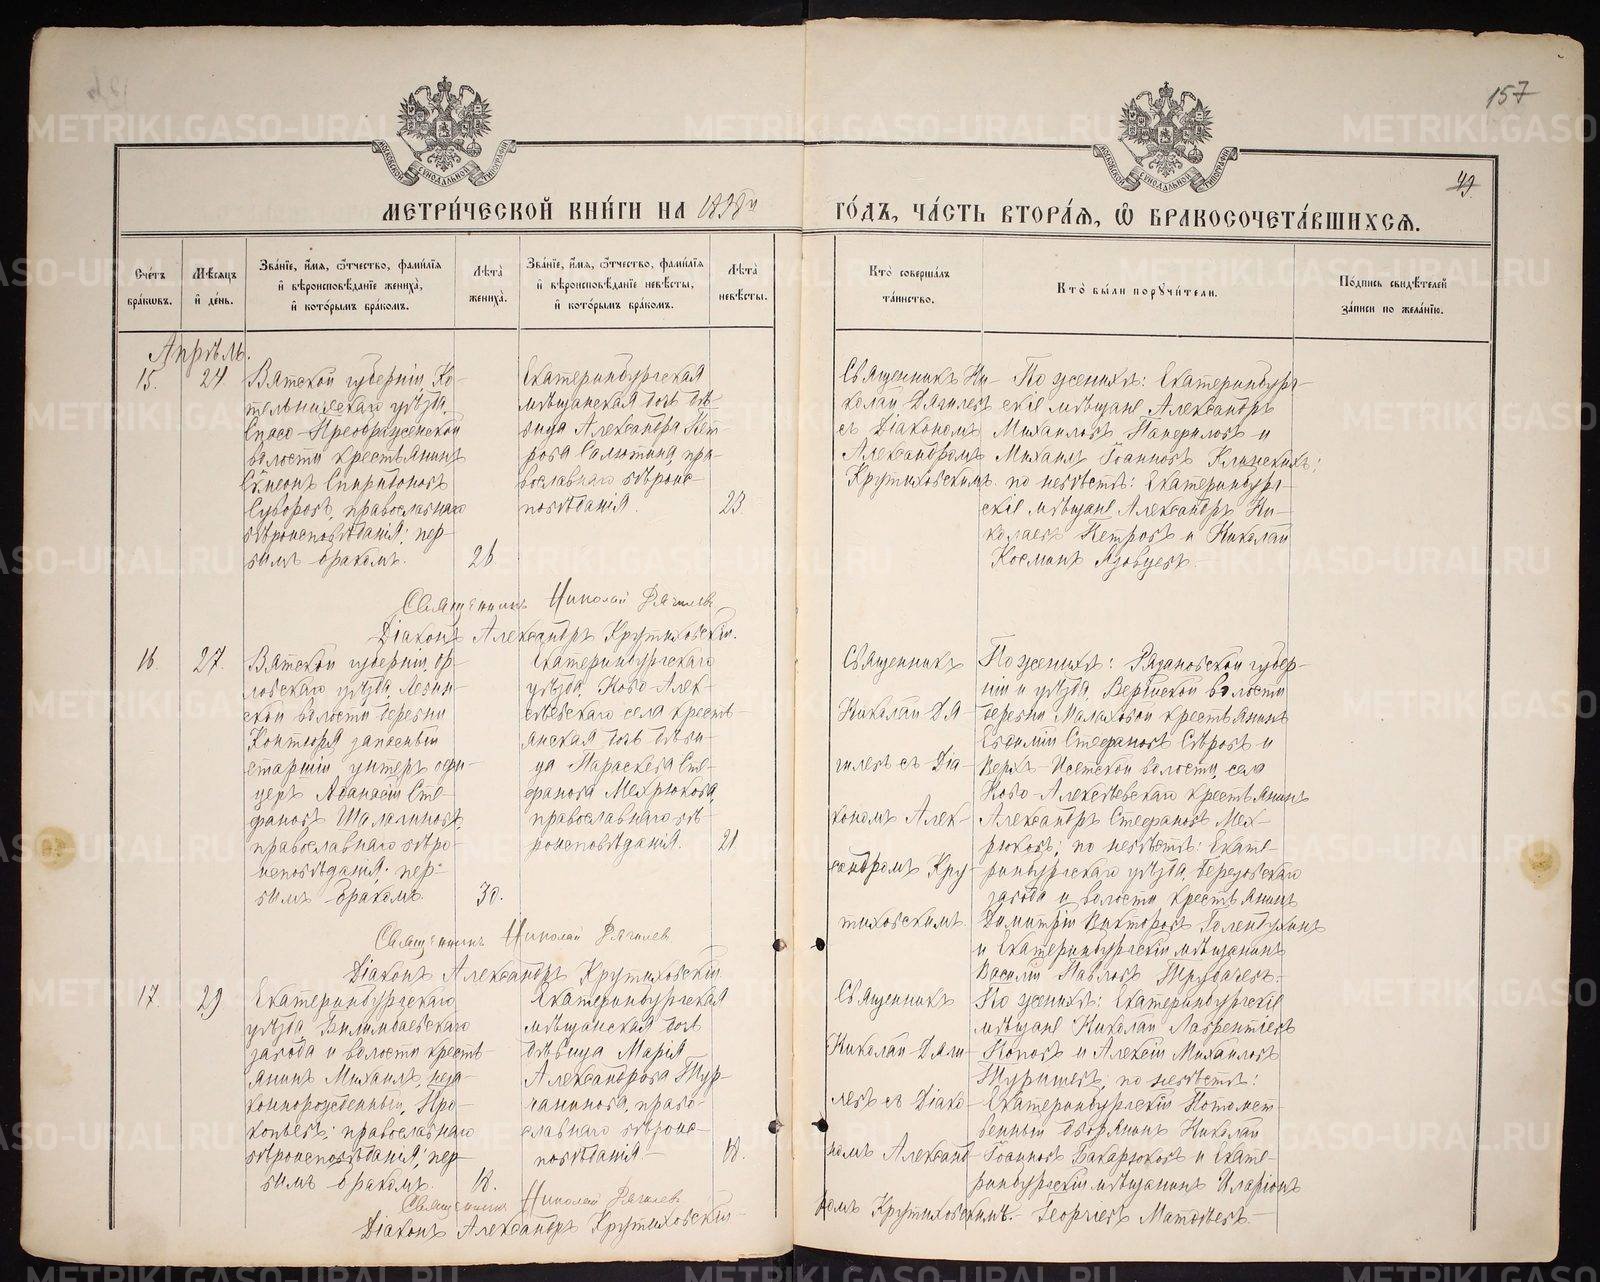 157
49.
МЕТРИ́ЧЕСКОЙ КНИ́ГИ НА 1898й ГО́ДЪ, ЧА́СТЬ ВТОРА́Я, Ѡ БРАКОСОЧЕТА́ВШИХСЯ.
Сче́тъ бра́ковъ.
Мѣ́сяцъ и҆ де́нь.
Зва́нїе, и҆́мя, ѻ҆́тчество, фами́лїя и҆ вѣроисповѣ́данїе жениха̀, и҆ кото́рымъ бра́комъ.
Лѣ́та жениха̀.
Зва́нїе, и҆́мя, ѻ҆́тчество, фами́лїя и҆ вѣроисповѣ́данїе невѣ́сты, и҆ кото́рымъ бра́комъ.
Лѣ́та невѣ́сты.
Кто̀ соверша́лъ та́инство.
Кто̀ бы́ли порꙋчи́тели.
По́дпись свидѣ́телей за́писи по жела́нїю.
Апрѣль.
15.
24.
Вятской губерніи, Ко-
тельническаго уѣзда,
Спасо-Преображенской
волости крестьянинъ
Симеонъ Спиридоновъ
Суворовъ, православнаго
вѣроисповѣданія; пер-
вымъ бракомъ.
26
Екатеринбургская
мѣщанская дочь дѣ-
вица Александра Пет-
рова Салютина, пра-
вославнаго вѣроис-
повѣданія.
23.
Священникъ Ни-
колай Дягилевъ
съ Діакономъ
Александромъ
Крутиховскимъ.
По женихѣ: Екатеринбург-
скіе мѣщане Александръ
Михаиловъ Паприловъ и
Михаилъ Іоанновъ Клинскихъ;
по невѣстѣ: Екатеринбург-
скіе мѣщане Александръ Ни-
колаевъ Петровъ и Николай
Косминъ Язовцевъ
Священникъ Николай Дягилевъ
Діаконъ Александръ Крутиховскій.
16.
27.
Вятской губерніи, ор-
ловскаго уѣзда, Левин-
ской волости деревни
запасный
старшій унтеръ офи-
церъ Аѳанасій Сте-
фановъ Шалагиновъ,
православнаго вѣро-
исповѣданія; пер-
вымъ бракомъ.
30.
Екатеринбургскаго
уѣзда, Ново-Алек-
сѣевскаго села кресть-
янская дочь дѣви-
ца Параскева Сте-
фанова Мехрюкова,
православнаго вѣ-
роисповѣданія.
21.
Священникъ
Николай Дя-
гилевъ съ Діа-
кономъ Алек-
сандромъ Кру-
тиховскимъ
По женихѣ: Рязановской губер-
ніи и уѣзда, Вергиской волости
деревни Малаховой крестьянинъ
Евѳимій Стефановъ Сѣровъ и
Верхъ-Исетской волости, села
Ново-Алексѣевскаго крестьянинъ
Александръ Стефановъ Мех-
рюковъ; по невѣстѣ: Екате-
ринбургскаго уѣзда, Березовскаго
завода и волости, крестьянинъ
Димитрій Викторовъ Голендухинъ
и Екатеринбургскій мѣщанинъ
Василій Павловъ Трубачевъ.
Священникъ Николай Дягилевъ
Діаконъ Александръ Крутиховскій
17.
29
Екатеринбургскаго
уѣзда, Билимбаевскаго
завода и волости кресть-
янинъ Михаилъ, неза-
коннорожденный, Про-
копьевъ; православнаго
вѣроисповѣданія; пер-
вымъ бракомъ.
18.
Екатеринбургская
мѣщанская дочь
дѣвица Марія
Александрова Тур-
чанинова, право-
славнаго вѣроис-
повѣданія
18.
Священникъ
Николай Дяги-
левъ съ Діако-
номъ Александ-
ромъ Крутиховскимъ.
По женихѣ: Екатеринбургскіе
мѣщане Николай Лаврентіевъ
Коповъ и Алексій Михаиловъ
Туришевъ; по невѣстѣ:
Екатеринбургскій Потомст-
венный дворянинъ Николай
Іоанновъ Бакарюковъ и Екате-
ринбургскій мѣщанинъ Иларіонъ
Георгіевъ Матвѣевъ
Священникъ Николай Дягилевъ
Діаконъ Александръ Крутиховскій